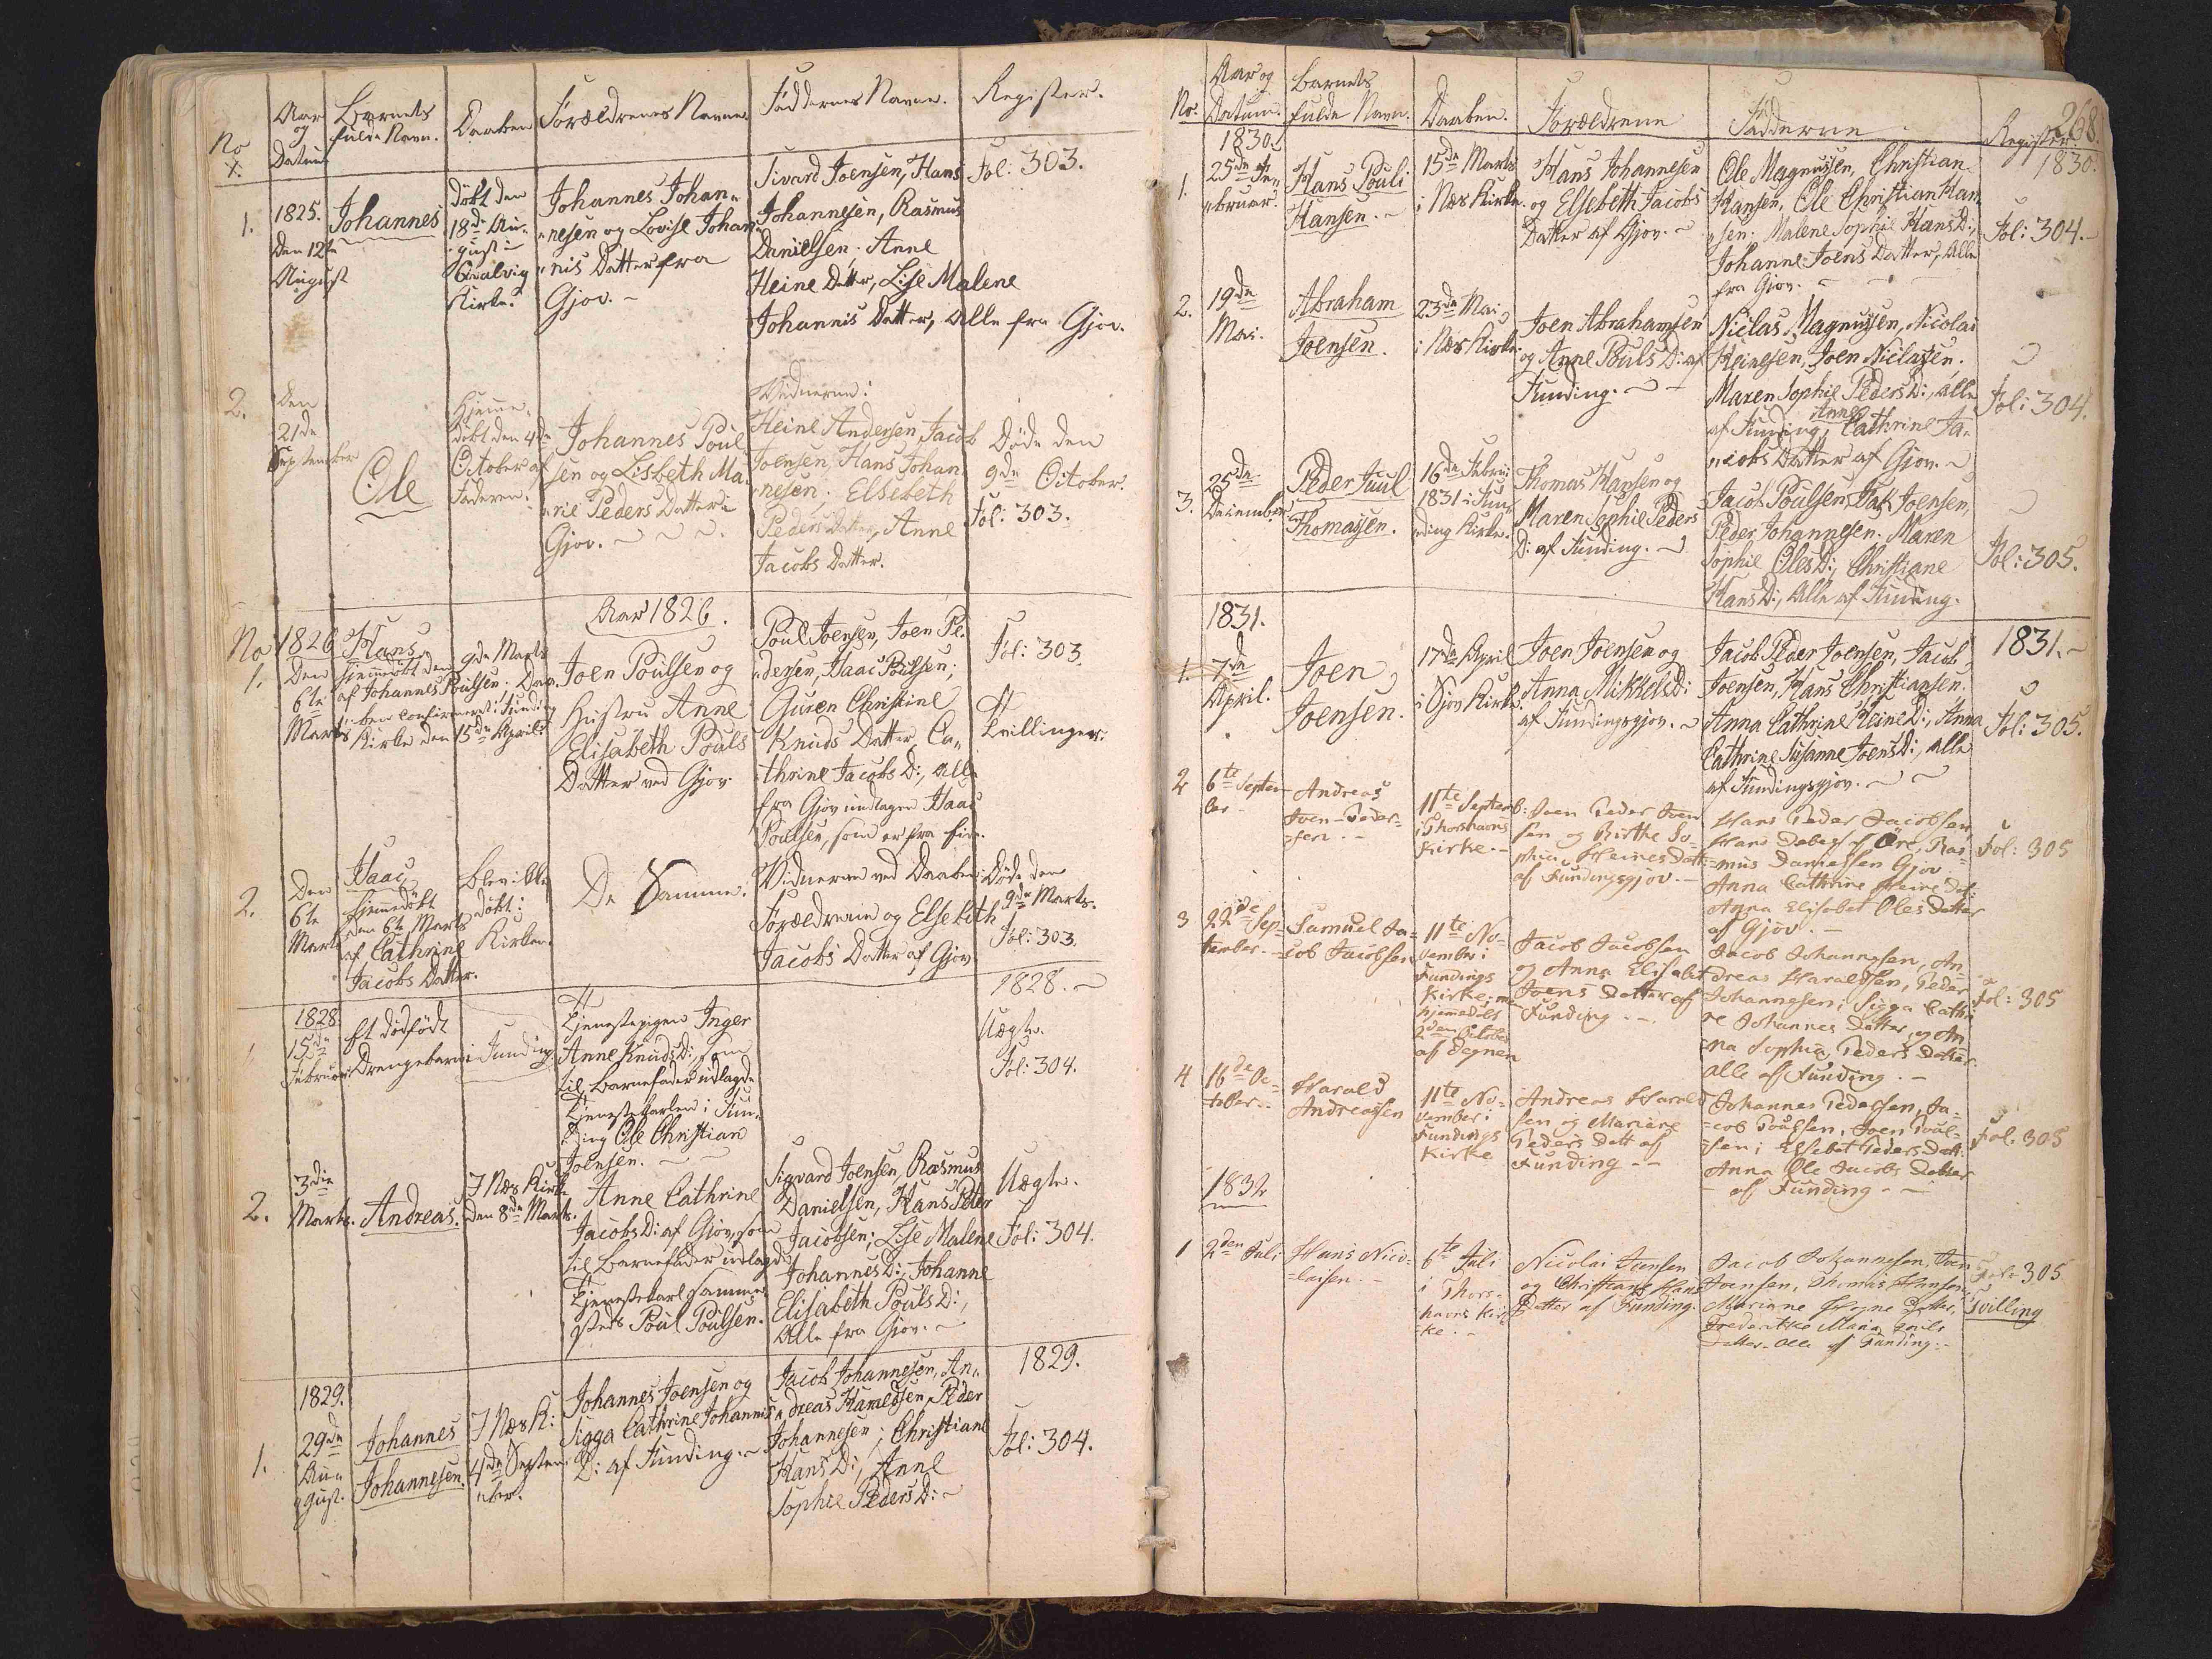 No
x.
Aar
og
Datum
Barnets
fulde Navn.
Daaben
Forældrenes Navne.
Faddernes Navne.
Register.
1.
1825.
Den 12te
August
Johannes
døbt den
18de Au-
gust i
Qvalvig
Kirke.
Johannes Johan-
nesen og Lovise Johan-
nis Datter fra
Gjov. -
Sivard Joensen, Hans
Johannesen, Rasmus
Danielsen. Anne
Heine Datter, Lise Malene
Johannis Datter, alle fra Gjov.
Fol: 303.
2.
Den
21de
September
Ole
Hjemme-
døbt den 4de
October af
Faderen.
Johannes Poul-
sen og Lisbeth Ma-
rie Peders Datter i
Gjov.
Vidnerne:
Heine Andersen, Jacob
Joensen, Hans Johan-
nesen. Elsebeth
Peders Datter, Anne
Jacobs Datter.
Døde den
9de October.
Fol: 303.
Aar 1826.
No
1.
1826
Den
6te
Marts
Hans
hjemmedøbt den 9de Marts
af Johannes Poulsen. Daa-
ben confirmeret i Funding
Kirke den 15de April.
Joen Poulsen og
Hustru Anne
Elisabeth Pouls
Datter ved Gjov.
Poul Joensen, Joen Pe-
dersen, Isaac Poulsen;
Guren Christine
Knuds Datter, Ca-
thrine Jacobs D:, alle
fra Gjov undtagen Isaac
Poulsen, som er fra Eide.
Fol: 303.
Tvillinger.
2.
Den
6te
Marts
Isaac
hjemmedøbt
den 6te Marts
af Cathrine
Jacobs Datter.
Blev ikke
døbt i
Kirken.
De Samme.
Vidnerne ved Daaben:
Forældrene og Elsebeth
Jacobs Datter af Gjov.
Døde den
9de Marts.
Fol: 303.
1828.
15de
Februari
Et dødfødt
Drengebarn i Funding
Tjenestepigen Inger
Anne Knuds D:, som
til Barnefader udlagde
Tjenestekarlen i Fun-
ding Ole Christian
Joensen.
1828. -
Uægte.
Fol: 304.
2.
3die
Marts.
Andreas.
I Næs Kirke
den 8de Marts.
Anne Cathrine
Jacobs D: af Gjov, som
til Barnefader udlagde
Tjenestekarl sammes-
steds Poul Poulsen.
Sigvard Joensen, Rasmus
Danielsen, Hans Peter
Jacobsen; Lise Malene
Johannes D:, Johanne
Elisabeth Pouls D:,
Alle fra Gjov. -
Uægte.
Fol: 304.
1.
1829.
29de
Au-
gust.
Johannes
Johannesen.
I Næs K:
4de Septem-
ber.
Johannes Joensen og
Sigga Cathrine Johannis
D: af Funding. -
Jacob Johannesen, An-
dreas Haraldsen, Peder
Johannesen; Christiane
Hans D:, Anne
Sophie Peders D: -
1829.
Fol: 304.
268.
No.
Aar og
Datum.
Barnets
fulde Navn.
Daaben.
Forældrene
Fadderne
Register.
1830.
1.
1830.
25de Fe-
bruar.
Hans Pouli
Hansen. -
15de Marts
i Næs Kirke.
Hans Johannesen
og Elsebeth Jacobs
Datter af Gjov. -
Ole Magnussen, Christian
Hansen, Ole Christian Han-
sen. Malene Sophie Hans D:,
Johanne Joens Datter, alle
fra Gjov. -
Fol: 304. -
2.
19de
Mai.
Abraham
Joensen.
23de Mai
i Næs Kirke.
Joen Abrahamsen
og Anne Pouls D: af
Funding. -
Niclas Magnussen, Nicolai
Heinesen, Joen Niclasen.
Maren Sophie Peders D:, alle
af Funding, Anne Cathrine Ja-
cobs Datter af Gjov. -
Fol: 304.
3.
25de
December
Peder Juul
Thomassen.
16de Febru:
1831 i Fun-
ding Kirke.
Thomas Hansen og
Maren Sophie Peders
D: af Funding. -
Jacob Poulsen, Isak Joensen,
Peder Johannesen. Maren
Sophie Oles D:, Christiane
Hans D:, Alle af Funding.
Fol: 305.
1831.
1.
7de
April.
Joen
Joensen.
17de April
i Gjov Kirke.
Joen Joensen og
Anna Mikkels D:
af Fundingsgjov. -
Jacob Peder Joensen, Jacob
Joensen, Hans Christiansen.
Anna Cathrine Heine D:, Anna
Cathrine Susanne Joens D:, alle
af Fundingsgjov. -
1831. -
Fol: 305.
2
6te Septem-
ber -
Andreas
Joen-Peder-
sen. -
11te Septemb:
i Thorshavns
Kirke. -
Joen Peder Joen
sen og Birthe So-
phia Heines Datt-
af Fundingsgjov. -
Hans Peder Jacobsen,
Ras-
mus Danielsen Gjov
Anna Cathrine Heine Dat:
Anna Elisabet Oles Datter
af Gjov. -
Fol: 305
3
22de Sep-
tember. -
Samuel Ja-
cob Jacobsen
11te No-
vember i
Fundings
Kirke,
hjemmedøbt
2den October
af Degnen
Jacob Jacobsen
og Anna Elisabet
Joens Datter af
Funding. -
Jacob Johannesen, An-
dreas Haraldsen, Peder
Johannesen; Sigga Cathi-
ne Johannes Datter, og An-
na Sophia Peders Datter.
alle af Funding. -
Fol: 305
4
16de Oc-
tober. -
Harald
Andreasen
11te No-
vember i
Fundings
Kirke
Andreas Harald
sen og Mariane
Peders Datt af
Funding - -
Johannes Pedersen, Ja-
cob Poulsen, Joen Poul-
sen; Elsebet Peders Datt:
Anna Ole Jacobs Datter
af Funding. -
Fol: 305
1832
1
2den Juli
Hans Nico-
laisen. -
6te Juli
i Thors-
havns Kir-
ke. -
Nicolai Joensen
og Christiane Hans
Datter af Funding.
Jacob Johannesen, Joen
Joensen, Thomas Hansen,
Mariane Hogne Datter,
Frederikke Maria
Datter. Alle af Funding. -
Fol: 305
Tvilling